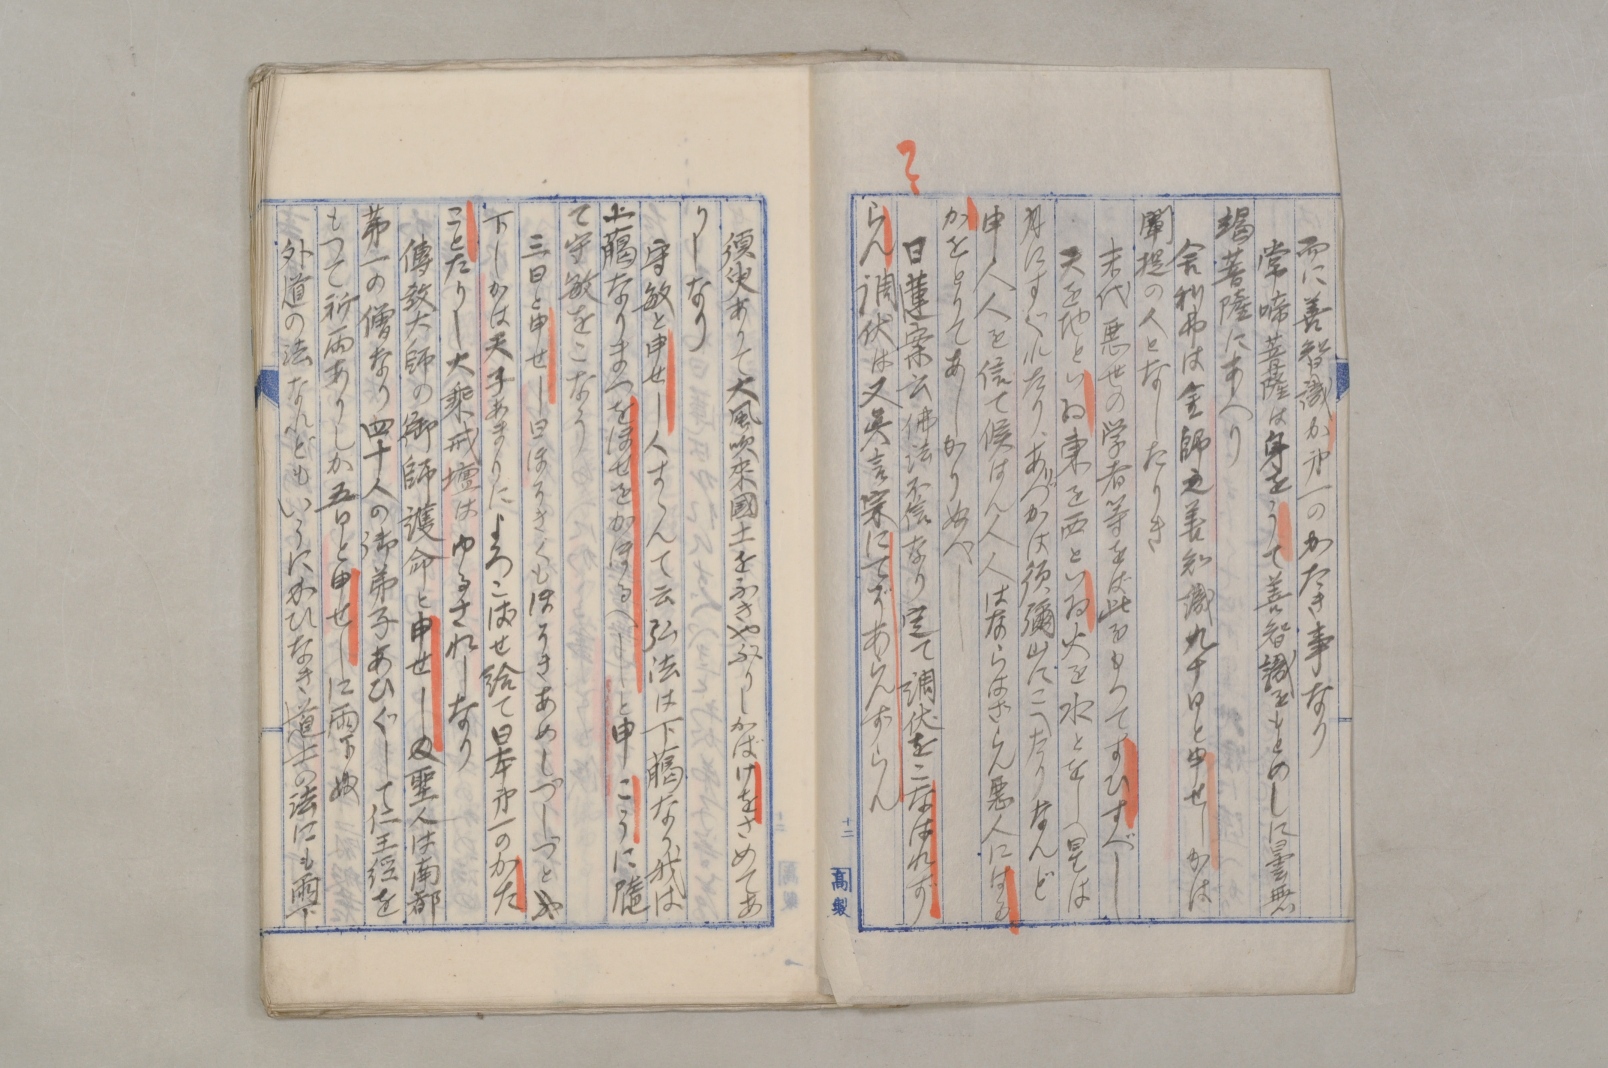 而に善智識か第一のかたき事なり
常啼菩薩は身をうて善智識をもとめしに曇無
竭菩薩にあへり
舎利弗は金師之善知識九十日と申せしかは
闡提の人となしたりき
末代悪世の学者等をは此をもつてすひすべし
天を地といゐ東を西といゐ火を水とをしへ星は
月にすぐれたり、ありづかは須彌山にこへたりなんど
申人人を信て候はん人人はならはさらん悪人にはを
かをとりてあしかりぬべし
日蓮案云佛法不信なり定て調伏をこなはれず
らん調伏は又真言宗にてぞあらんずらん
そ
十二
高製
須臾ありて大風吹来國土をふきやぶりしかばけをさめてあ
りしなり
守敏と申せし人すゝんて云弘法は下﨟なり我は
上﨟なりまつをほせをかほるへしと申こうに隨
て守敏をこなう
三日と申せし日ほそぎくもほそきあめしづしづとや
下しかは天子あまりによろこばせ給て日本第一のかた
ことたりし大乘戒壇はゆるされしなり
傳教大師の御師護命と申せし聖人は南都
第一の僧なり四十人の御弟子あひぐして仁王經を
もつて祈雨ありしか五日と申せしに雨下ぬ
外道の法なれどもいうにかひなき道士の法にも雨下